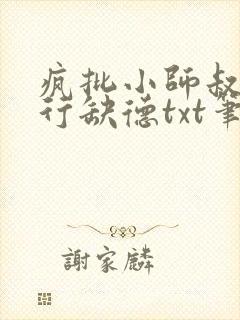 疯批小师叔
行缺德txt笔
謝家麟